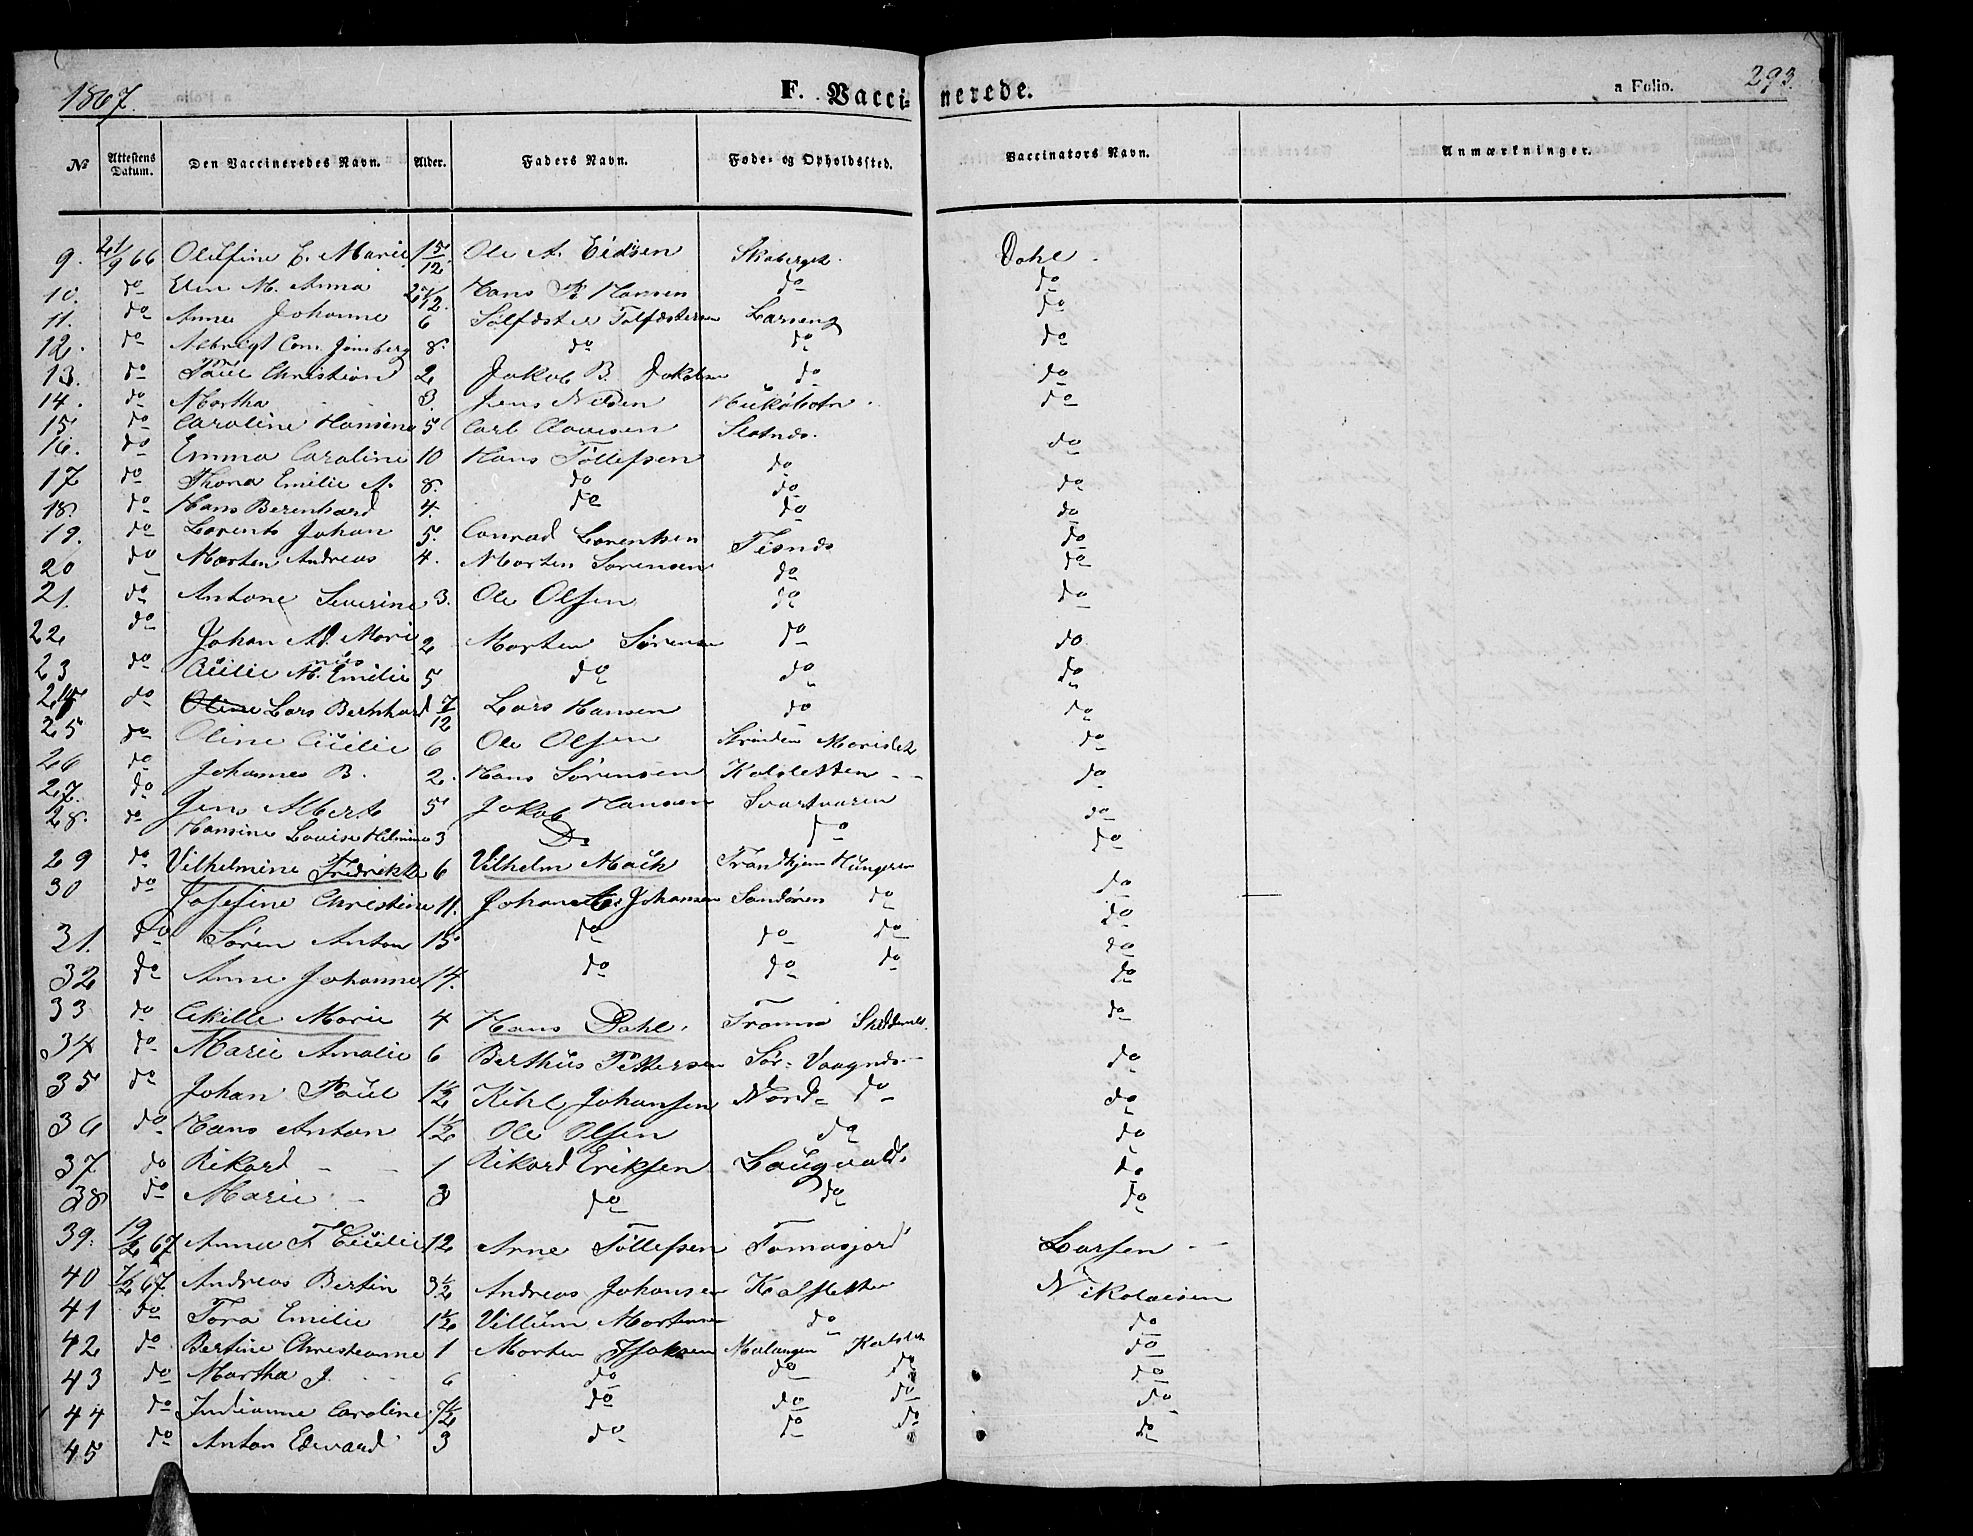 1867. F. Vaccinerede. a Folio. 293.
No Attestens Datum. Den Vaccineredes Navn. Alder. Faders Navn. Føde- og Opholdssted. Vaccinators Navn. Anmærkninger.
9. 21/9 66 Oluffine E. Marie 1 5/12 Ole A. Eidsen Dahl
10. do Elen M. Anna 2 Hans P. Hansen do do
11. do Anne Johanne 6 Larseng do
12. do Albrigt Con. 8. do do do
13. do Paul Christian 2 Jakob B. Jakobsen do do
14. do Martha 3. Jens Nilsen do
15 do Caroline Hansine 5 Carl Clausen Slatnds.
16. do Emma Caroline 10 Hans Tollefsen do do
17 do Thora Emilie A. 8. do do do
18. do Hans Berenhard 4. do do do
19. do Lorents Johan 5. Conrad Lorentsen do
20 do Morten Andreas 4. Morten Sørensen do do
21. do Antone Severine 3. Ole Olsen do do
22 do Johan Ad. Mari 2 Morten Sørensen do do
23 do Cecilie M. Emilie 5 do do do
24 do Oline Lars Bernhard 7/12 Lars Hansen do do
25 do Oline Cecilie 6 Ole Olsen do
26 do Johannes B. 2. Hans Sørensen Kalsletten do
27. do Jens Albert 5 Jakob Hansen Svartnaren do
28. do Hansine Lovise Helmine 3 Do do do
29 do Vilhelmine Fredrikke 6 Vilhelm Mack Trondhjem do
30 do Josefine Christine 11. Johan Johansen Sandøren do do
31. do Søren Anton 15 do do do do
32 do Anne Johanne 14. do do do do
33 do Marie 4 Hans Dahl. Tromsø do
34 do Marie Amalie 6 Berthus Pettersen Sør-Vaagnds do
35 do Johan Paul 1½ Kihl Johansen Nord- do do
36 do Hans Anton 1½ Ole Olsen do do
37 do Rikard 1 Rikard Eriksen do
38 do Marie 3 do do do
39. 19/2 67 Anna F. Cecilie 12 Arne Tollefsen Tomasjord Larsen
40 7/2 67 Andreas Bertin 3½ Andreas Johansen Kalsletten Nikolaisen
41 do Tora Emilie 1½ Villum Mortensen do do
42 do Bertine Christianne 1 Morten Malangen Kalslet do
43 do Martha J. 6 do do do do
44 do Indianne Caroline 7½ do do do do
45 do Anton Edevard 3 do do do do